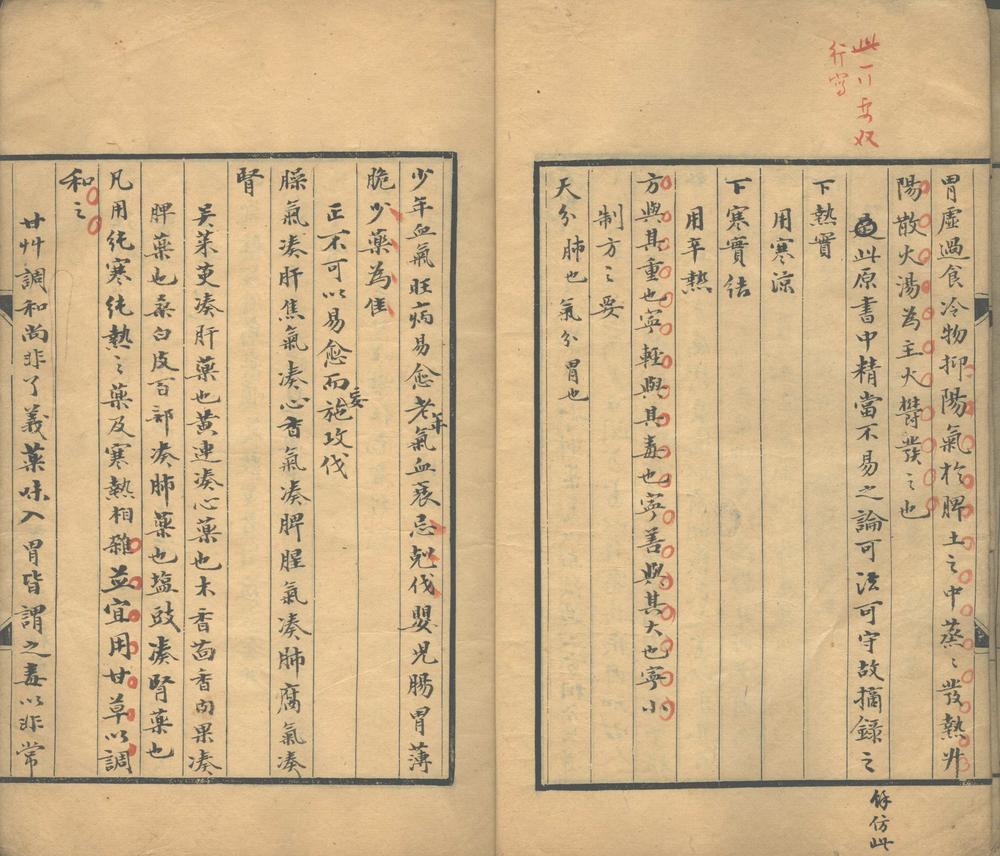 此一行要奴
行寫
胃虛過食冷物抑陽氣於脾土之中蒸〻發熱升
陽散火湯為主火鬱發之也
此原書中精當不易之論可法可守故摘錄之
餘仿此
下熱實
用寒涼
下寒實結
用辛熱
方與其重也寧輕與其毒也寧善與其大也寧小
制方之要
天分肺也氣分胃也
少年血氣旺病易愈老年氣血衰忌剋伐嬰兒腸胃薄
脆少藥為佳
正不可以易愈而妄施攻伐
臊氣凑肝焦氣凑心香氣凑脾腥氣凑肺腐氣凑
腎
吳茱萸凑肝藥也黄連凑心藥也木香茴香肉果凑
脾藥也桑白皮百部凑肺藥也塩豉凑腎藥也
凡用純寒純熱之藥及寒熱相雜並宜用甘草以調
和之
甘艸調和尚非了義藥味入胃皆謂之毒以非常